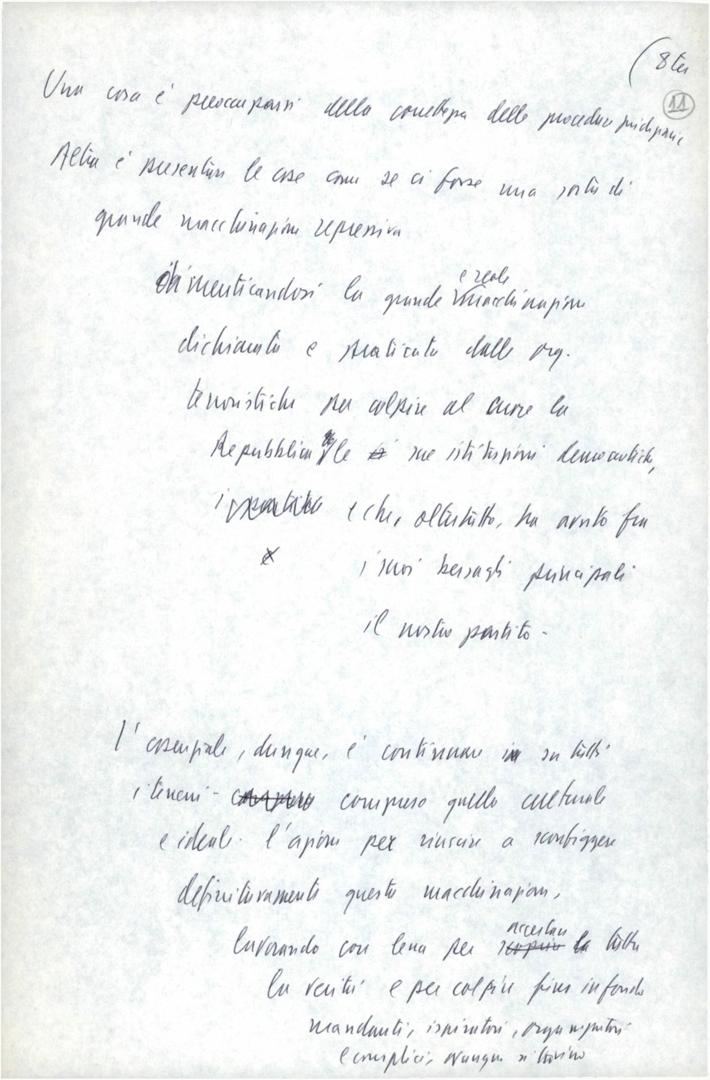 (8 ter
11
Una cosa è preoccuparsi della correttezza delle procedure giudiziarie
Altra è presentare le cose come se ci fosse una sorta di
grande macchinazione repressiva
dimenticandosi la grande e reale macchinazione
dichiarata e praticata dalle org.
terroristiche per colpire al cuore la
Repubblica e le sue istituzioni democratiche,
e che, oltretutto, ha avuto fra
i suoi bersagli principali
il nostro partito -
L'essenziale, dunque, è continuare su tutti
i terreni - compreso quello culturale
e ideale - l'azione per riuscire a sconfiggere
definitivamente questa macchinazione,
lavorando con lena per accertare tutta
la verità e per colpire fino in fondo
mandanti, ispiratori, organizzatori
e complici, ovunque si trovino